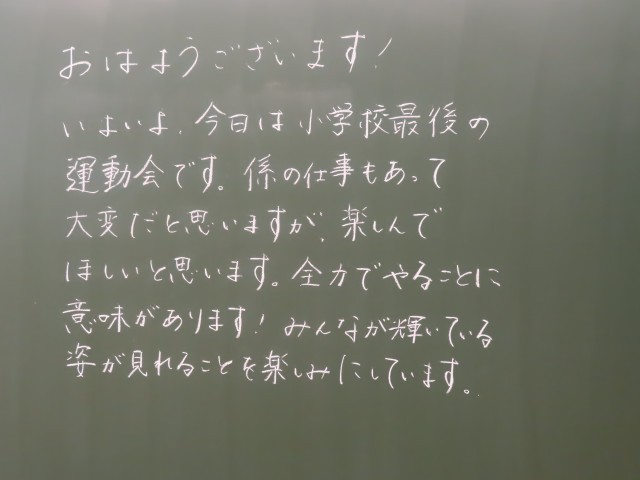 おはようございます!
いよいよ、今日は小学校最後の
運動会です。係の仕事もあって
大変だと思いますが、楽しんで
ほしいと思います。全力でやることに
意味があります!みんなが輝いている
姿が見れることを楽しみにしています。